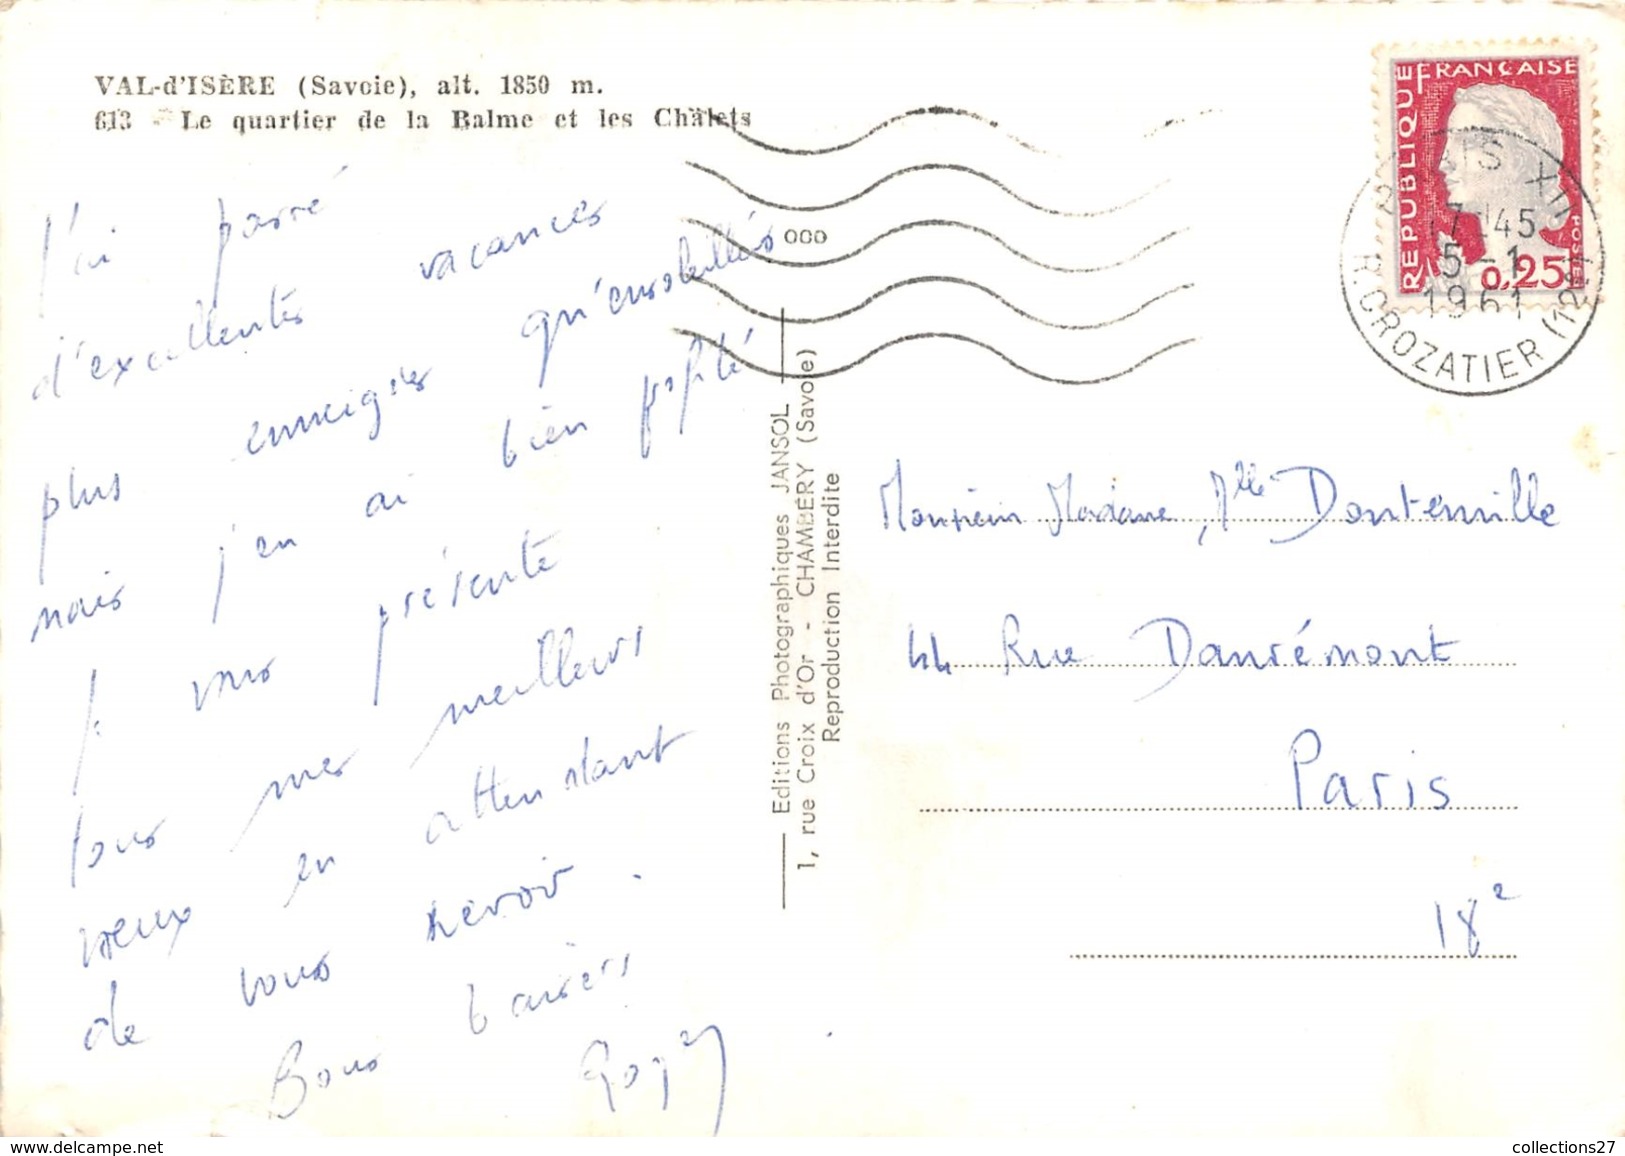 VAL-d'ISÈRE (Savoie), alt. 1850 m.
613 - Le quartier de la Balme et les Châlets
J'ai passé
d'excellentes vacances
plus enneigées qu'ensoleillées
mais j'en ai bien profité
Je vous présente
tous mes meilleurs
vœux en attendant
de vous revoir.
Bons baisers
Roger
Editions Photographiques JANSOL
1, rue Croix d'Or - CHAMBÉRY (Savoie)
Reproduction Interdite
RÉPUBLIQUE FRANÇAISE
POSTES
0,25
PARIS XII
17-45
5-1
1961
R. CROZATIER (12e)
000
Monsieur Madame, Mlle Dontenville
44 Rue Damrémont
Paris
18e
delcampe.net
collections27